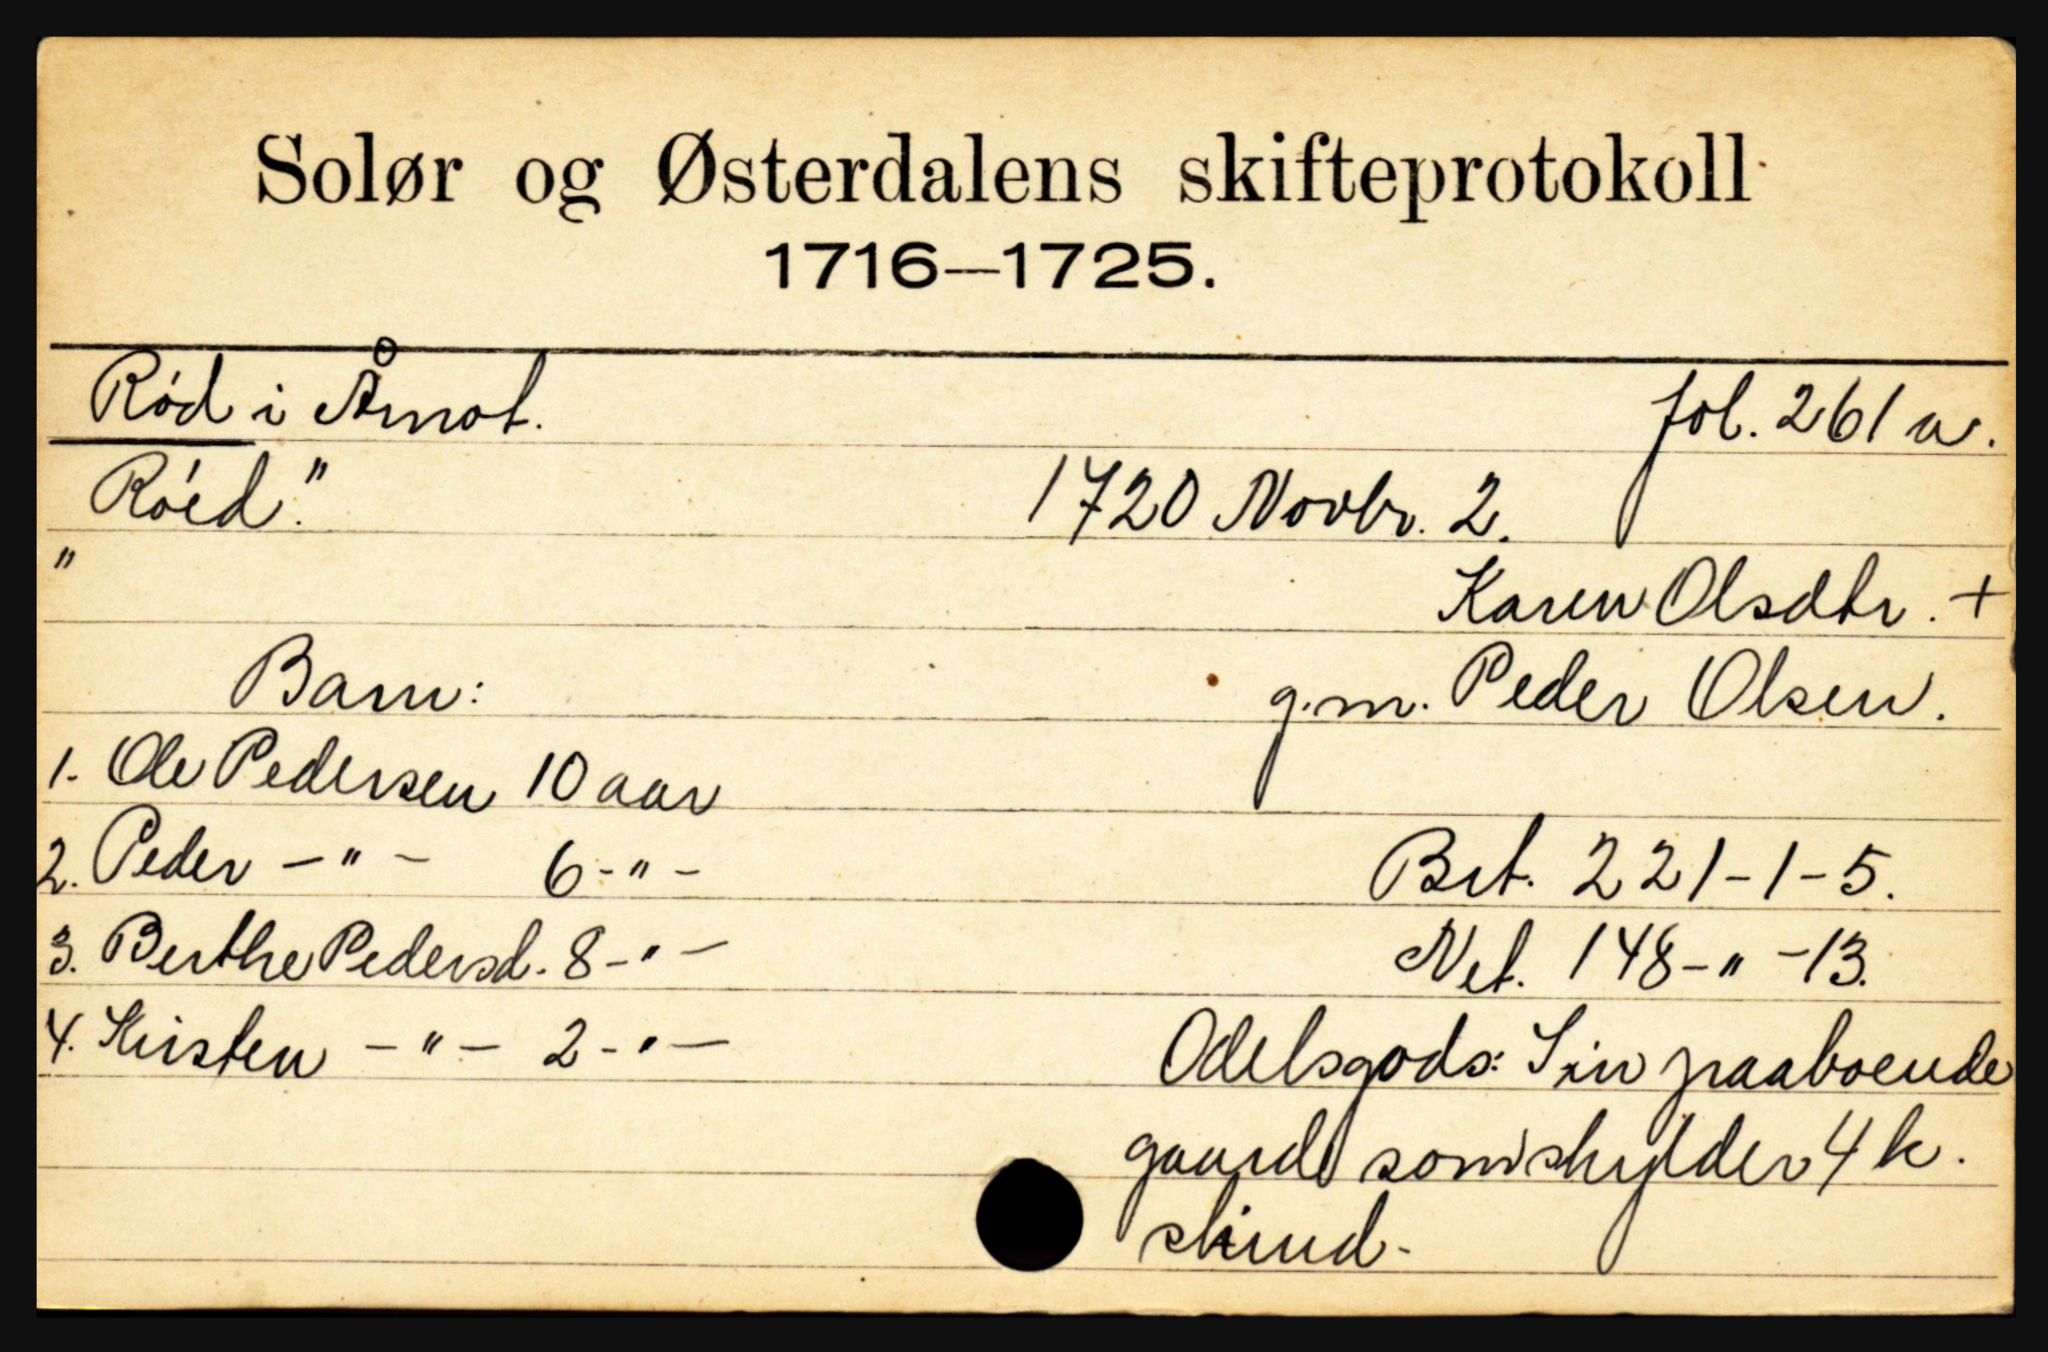 Solør og Østerdalens skifteprotokoll
1716—1725.
Rød i Åmot. fol. 261 a.
Røed." 1720 Novbr. 2.
" Karen Olsdtr. +
Barn: g.m. Peder Olsen.
1. Ole Pedersen 10 aar
2. Peder -"- 6-"- Brt. 221-1-5.
3. Berthe Pedersd. 8-"- Net. 148-"-13.
4. Kirsten -"- 2-"- Odelsgods: Sin paaboende
gaard som skylder 4 k.
skind.